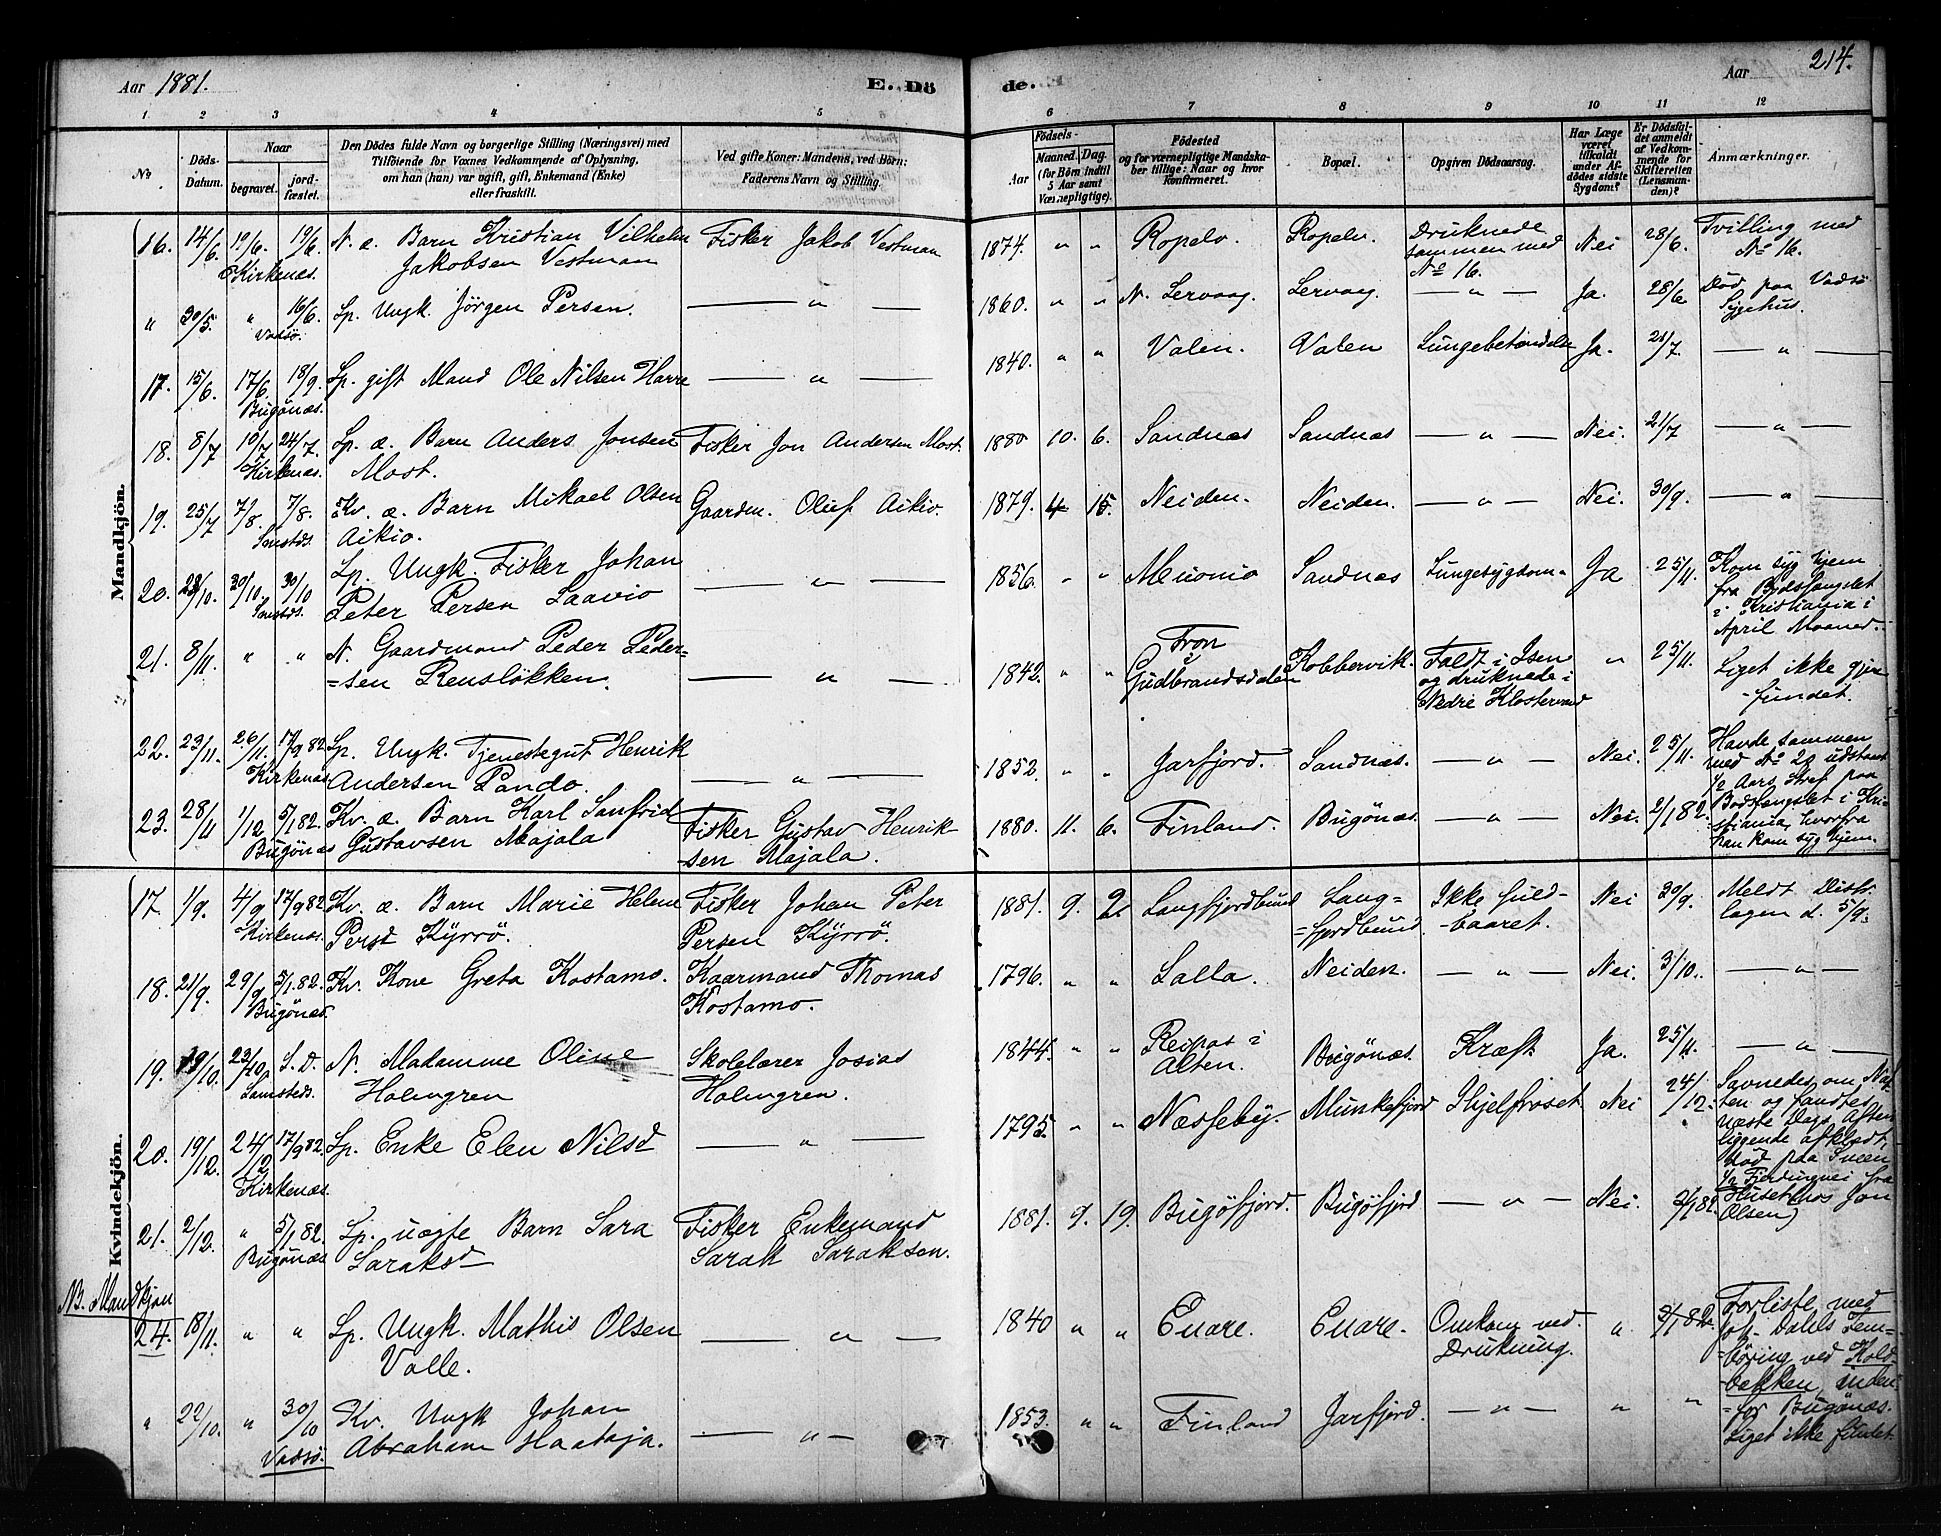 Aar 1881. E. Dö de. Aar 214.
1. 2 3 4 5 6 7 8 9 10 11 12
No Döds-Datum. Naar begravet. jord-fæstet. Den Dödes fulde Navn og borgerlige Stilling (Næringsvei) med Tilföiende for Voxnes Vedkommende af Oplysning, om han (hun) var ugift, gift, Enkemand (Enke) eller fraskilt. Ved gifte Koner: Mandens, ved Börn: Faderens Navn og Stilling. Födsels- Aar Maaned. Dag. (for Börn indtil 5 Aar samt Værnepligtige). Födested og for værnepligtige Mandskaber tillige: Naar og hvor konfirmeret. Bopæl. Opgiven Dödsaarsag. Har Læge været tilkaldt under Afdödes sidste Sygdom? Er Dödsfaldet anmeldt af Vedkommende for Skifteretten (Lensmanden)? Anmærkninger.
Mandkjön.
16. 14/6. 19/6. 19/6. N. æ. Barn Kristian Vilhelm Fisker Jakob Vestman 1874. " " Ropelv. Ropelv. Druknede Nei 28/6. Tvilling med
Kirkenes. Jakobsen Vestman sammen med No 16. No 16.
" 30/5. " 16/6. Sp. Ungk. Jörgen Persen. — " — 1860. " " N. Lervaag. Lervaag. — " — Ja. 28/6 Död paa Vadsö
Vadsö. Sygehus.
17. 15/6. 17/6. 18/9. Sp. gift Mand Ole Nilsen Harre — " — 1840. " " Valen. Valen Lungebetændelse Ja. 21/7. — " —
Bugönæs.
18. 8/7 10/7 24/7. Sp. æ. Barn Anders Jonsen Fisker Jon Andersen Most. 1880 10. 6. Sandnæs Sandnæs — " — Nei. 21/7 — " —
Kirkenæs. Most.
19. 25/7 7/8. 7/8. Kv. æ. Barn Mikael Olsen Gaardm. Oluf Aikio. 1879. 4 15. Neiden. Neiden. — " — Nei. 30/9. — " —
Samstds. Aikio.
20. 28/10. 30/10. 30/10 Sp. Ungk. Fisker Johan — " — 1856. " " Muonio Sandnæs Lungesygdom Ja 25/11. Kom syg hjem
Samstds. Peter Persen Saavio fra Bodsfængslet
i Kristiania i
April Maaned.
21. 8/11. " " N. Gaardmand Peder Peder= — " — 1842. " " Fron i Kobbervik. Faldt i Isen " 25/11. Liget ikke gjen
=sen Rensløkken. Gudbrandsdalen og druknede i -fundet.
Nedre Klostervand
22. 23/11. 26/11. 17/9 82. Sp. Ungk. Tjenestegut Henrik — " — 1852. " " Jarfjord. Sandnæs. — " — Nei. 25/11. Havde sammen
Kirkenæs Andersen Pando. med No 20 udstaaet
1/2 Aars Straf paa
23. 28/11 1/12 5/1 82. Kv. æ. Barn Karl Sanfrid Fisker Gustav Henrik- 1880. 11. 6. Finland. Bugönæs. — " — Nei. 2/1 82. Bodsfængslet i Kri
Bugönæs Gustavsen Majala -sen Majala. stiania, hvorfra
han kom syg hjem.
Kvindekjön.
17. 1/9. 4/9 17/9 82 Kv. æ. Barn Marie Helene Fisker Johan Peter 1881. 9. 2. Langfjordbund Lang= Ikke fuld- Nei 30/9. Meldt Distr.
Kirkenæs. Persd Kyrrö. Persen Kyrrö. =fjordbund. -baaret. lægen d. 5/9.
18. 21/9. 29/9 5/1 82. Kv. Kone Greta Kostamo. Kaarmand Thomas 1796. " " Salla. Neiden. — " — Nei. 3/10. — " —
Bugönæs. Kostamo.
19. 19/10. 23/10. S. D. N. Madamme Oline Skolelærer Josias 1844. " " Reipas i Bugönæs. Kræft Ja. 25/11. — " —
Samsteds. Holmgren Holmgren. Alten.
20. 19/12. 24/12 17/9 82. Sp. Enke Elen Nilsd — " — 1795. " " Næsseby. Munkefjord Ihjelfroset Nei 24/12. Savnedes om Nat
Kirkenæs. ten og fandtes
næste Dags Aften
liggende afklædt
död paa Sneen
1/2 Fjerdingvei fra
21. 2/12. " 5/1 82. Sp. uægte Barn Sara Fisker Enkemand 1881. 9. 19. Bugöfjord. Bugöfjord — " — Nei. 2/1 82. Huset (hos Jon
Bugönæs Saraksd Sarak Saraksen. Olsen)
NB. Mandkjön
24. 18/11. " " Sp. Ungk. Mathis Olsen — " — 1840 " " Enare. Enare. Omkom ved " 2/1 82. Forliste med
Valle. Drukning. Joh. Dahls Fem=
=böring ved Hold-
=bækken, inden
" 22/10. " 30/10 Kv. Ungk Johan — " — 1853. " " Finland Jarfjord. — " — " " =for Bugönæs.
Vadsö. Abraham Haataja. Liget ikke fundet.